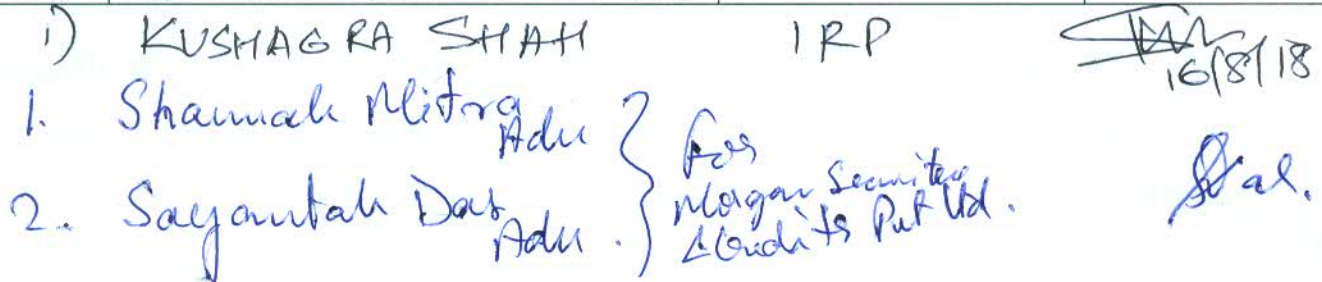 i) KUSHAGRA SHAH IRP
16/8/18
1. Shaunak Mitra Adv } for
2. Sayantak Das Adv. } Morgan Securities
& Credits Pvt Ltd.